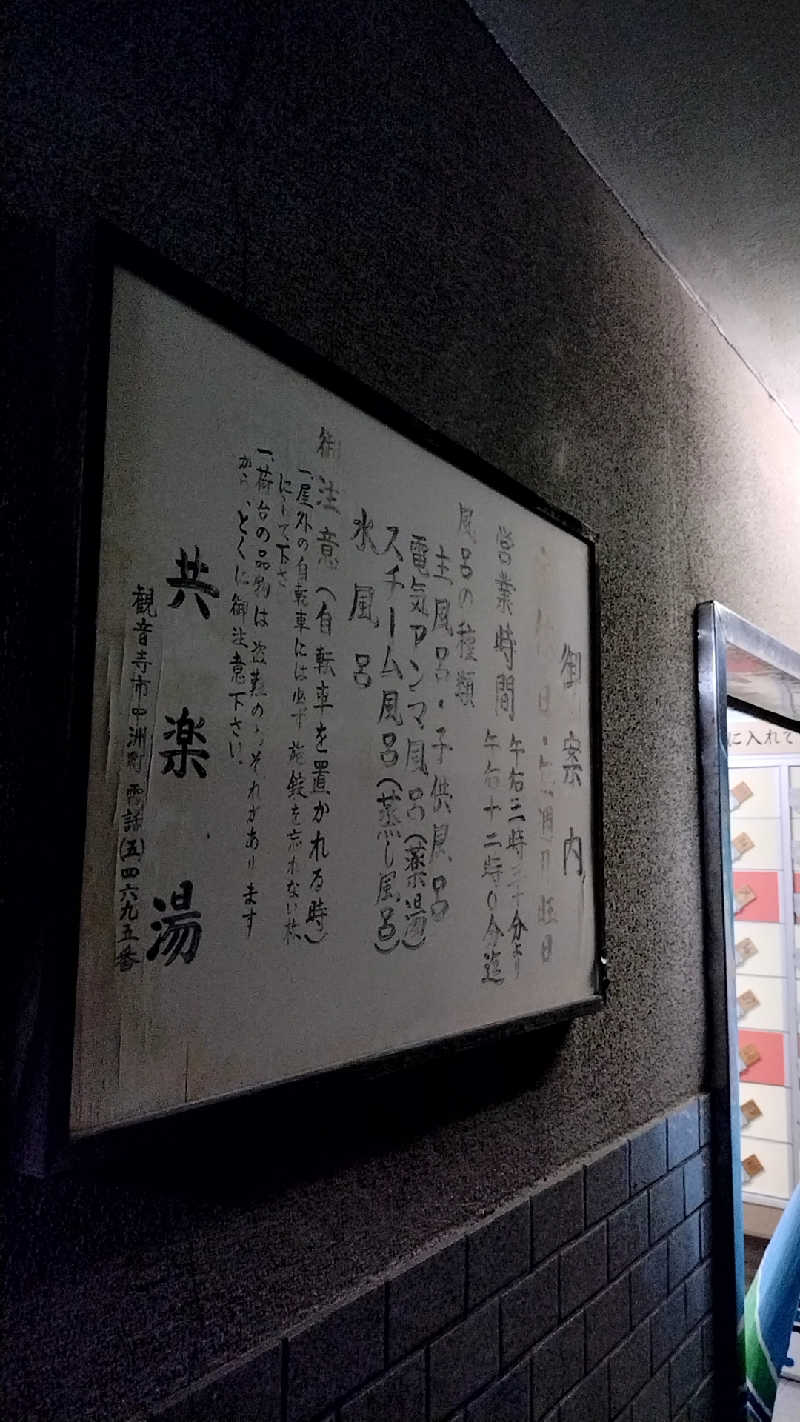 御案内
定休日・毎週月曜日
営業時間 午后三時三十分より
午后十二時〇分迄
風呂の種類
主風呂・子供風呂
電気アンマ風呂(薬湯)
スチーム風呂(蒸し風呂)
水風呂
御注意(自転車を置かれる時)
一、屋外の自転車には必ず施錠を忘れない様
にして下さ
一、荷台の品物は盗難のおそれがあります
から、とくに御注意下さい。
共楽湯
観音寺市中洲町電話(五)四六九五番
に入れて